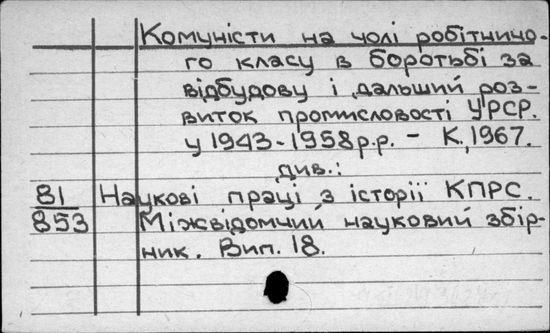 Комуністи на чолі робітничо-
го класу в боротьбі за
відбудову і дальший роз-
виток промисловості УРСР.
у 1943-1958р.р. - К., 1967.
див.:
81 Наукові праці з історії КПРС.
853 Міжвідомчий науковий збір-
ник. Вип. 18.